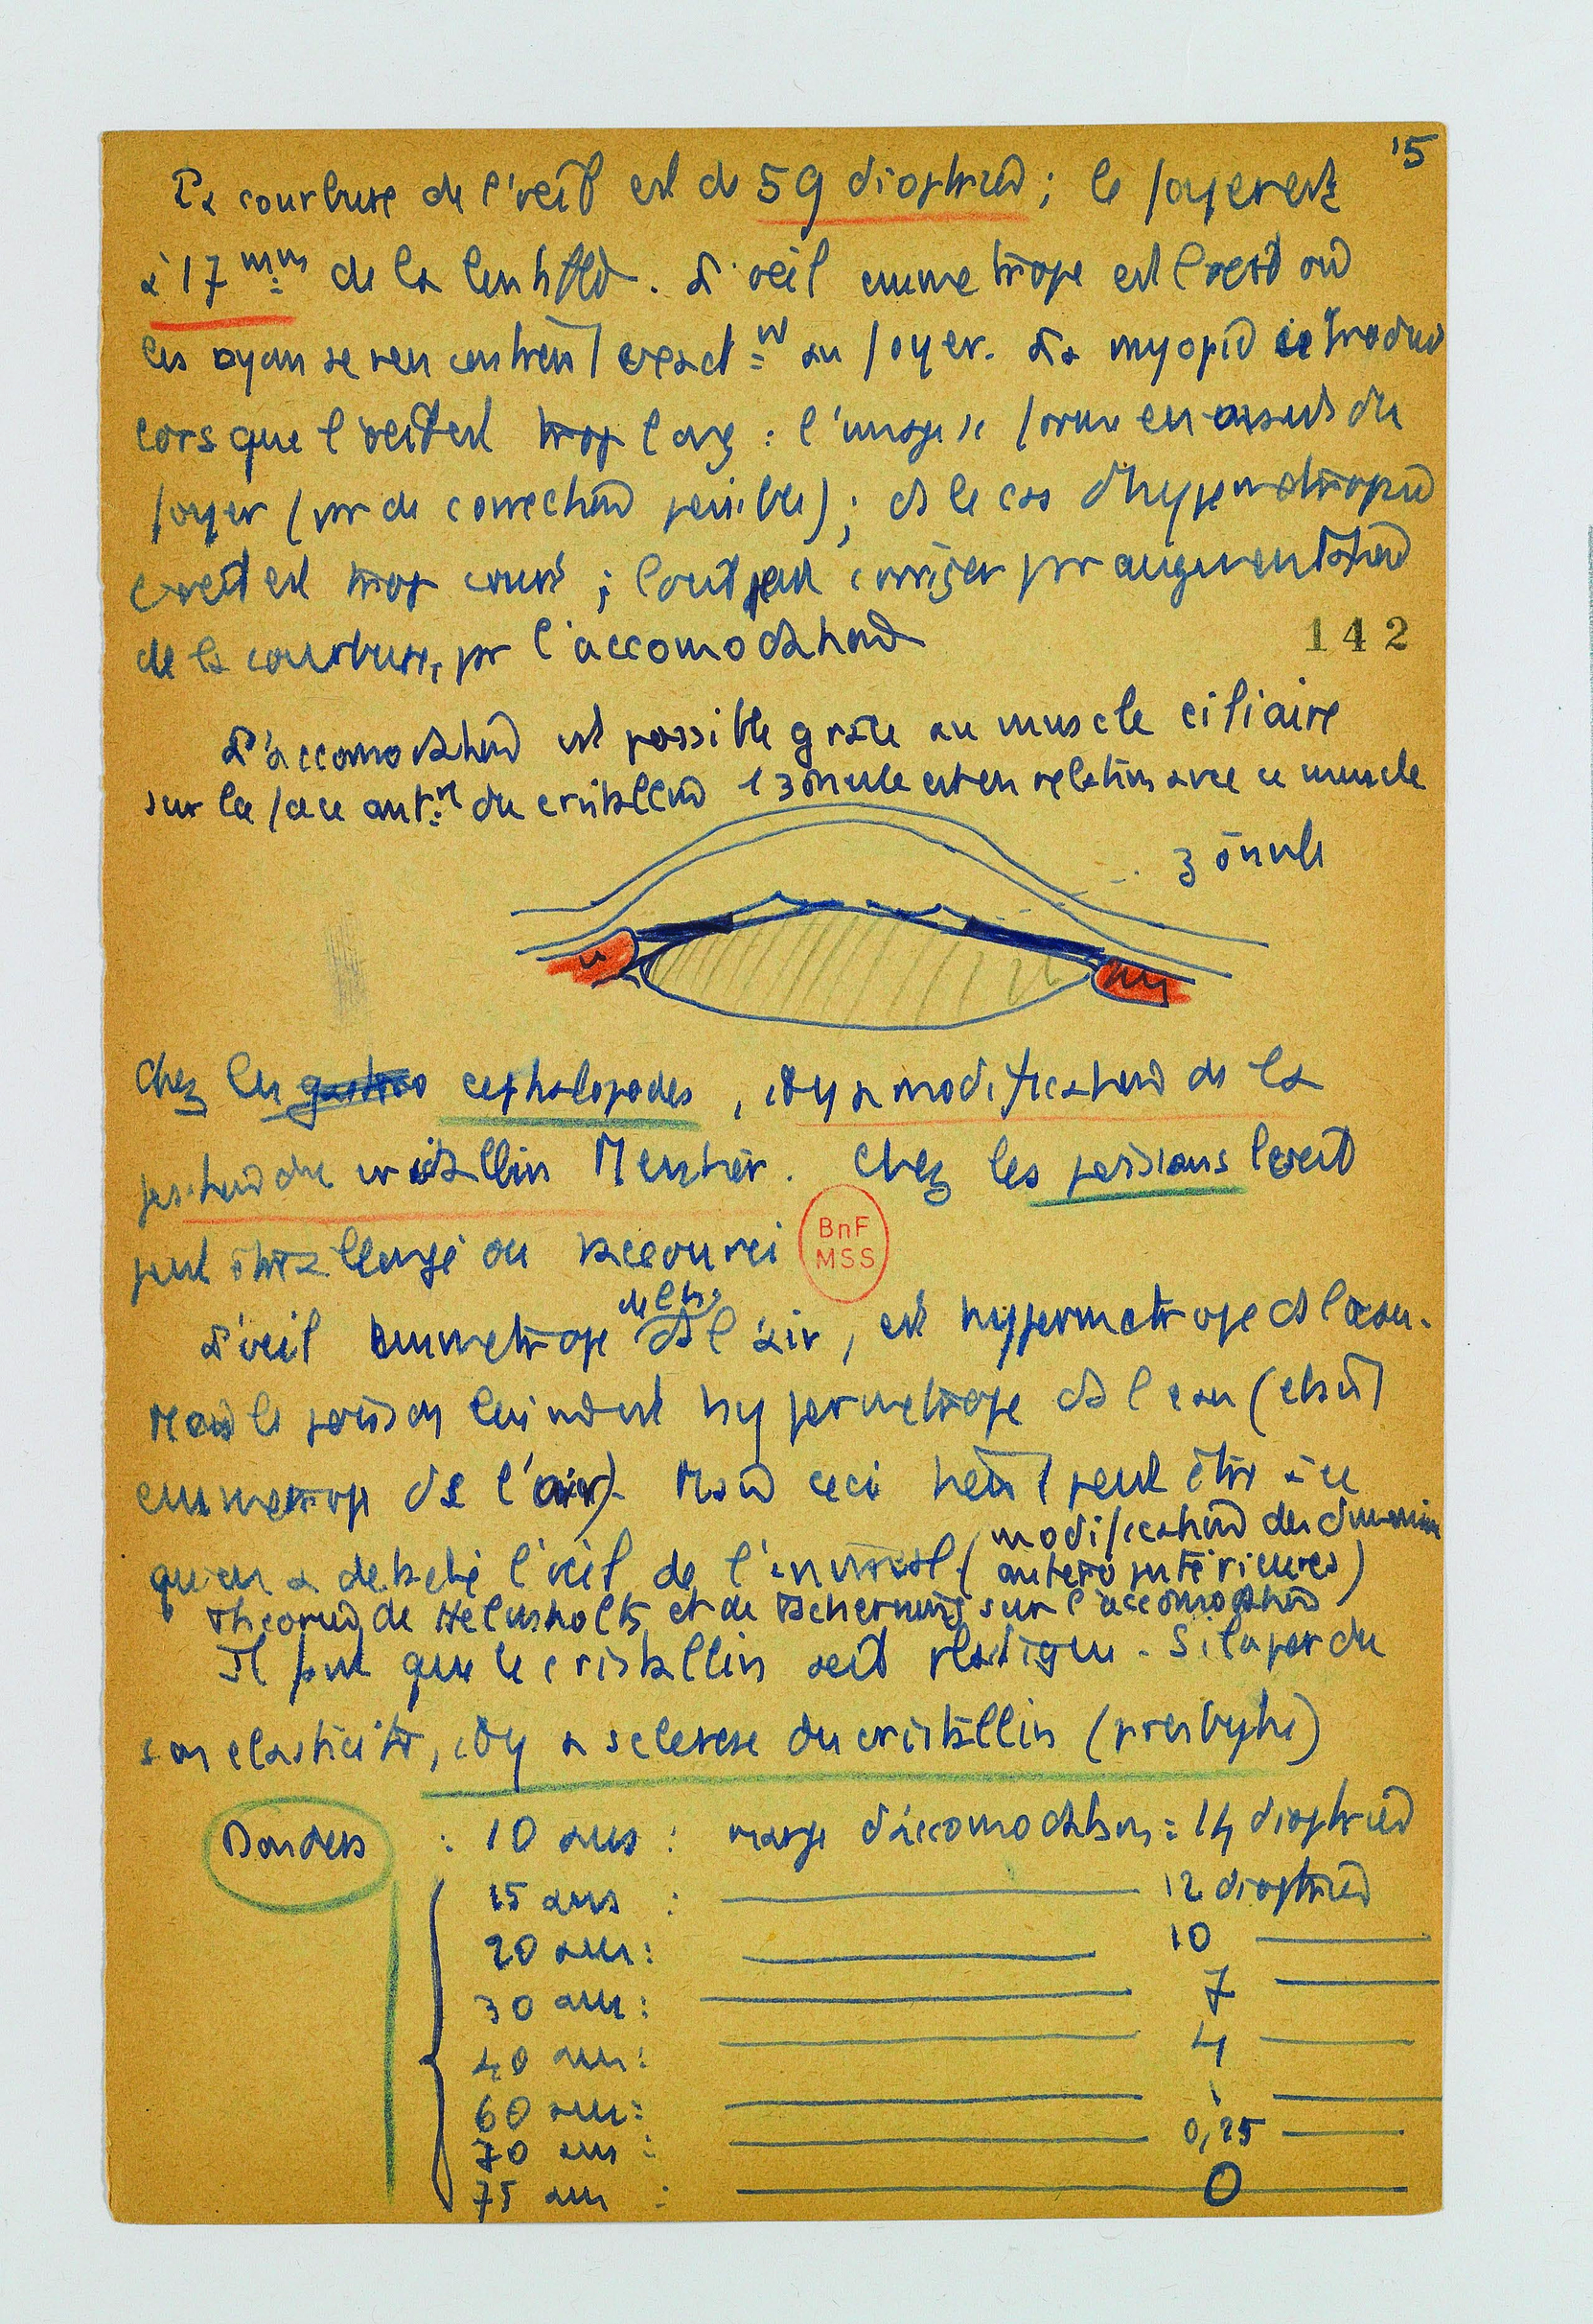 15
La courbure de l'oeil est de 59 dioptries ; le foyer est
à 17 mm de la lentille. L'oeil emmetrope est l'oeil où
les rayons se rencontrent exact=nt au foyer. La myopie se produit
lorsque l'oeil est trop long : l'image se forme en avant du
foyer (pas de correction possible) ; ds le cas d'hypermetropie
l'oeil est trop court ; l'oeil peut corriger par augmentation
de la courbure, par l'accomodation
142
L'accomodation est possible grâce au muscle ciliaire
sur la face ant. du cristallin l zonule est en relation avec ce muscle
zonule
m
m
Chez les gastro cephalopodes, il y a modification de la
position du cristallin. Chez les poissons l'oeil
peut être allongé ou raccourci
BnF
MSS
L'oeil emmetrope ds l'air, est hypermetrope ds l'eau.
Mais le poisson lui est hypermetrope ds l'eau (etant
emmetrope ds l'air). Mais ceci peut être à ce
qu'on a detaché l'oeil de l'animal (modification des dimensions
antero postérieures)
Theories de Helmholtz et de Tscherning sur l'accomodation
Il faut que le cristallin soit plastique. S'il a perdu
son elasticité, il y a sclerose du cristallin (presbytie)
Donders : 10 ans : marge d'accomodation = 14 dioptries
15 ans : 12 dioptries
20 ans : 10
30 ans : 7
40 ans : 4
60 ans : 1
70 ans : 0,25
75 ans : 0